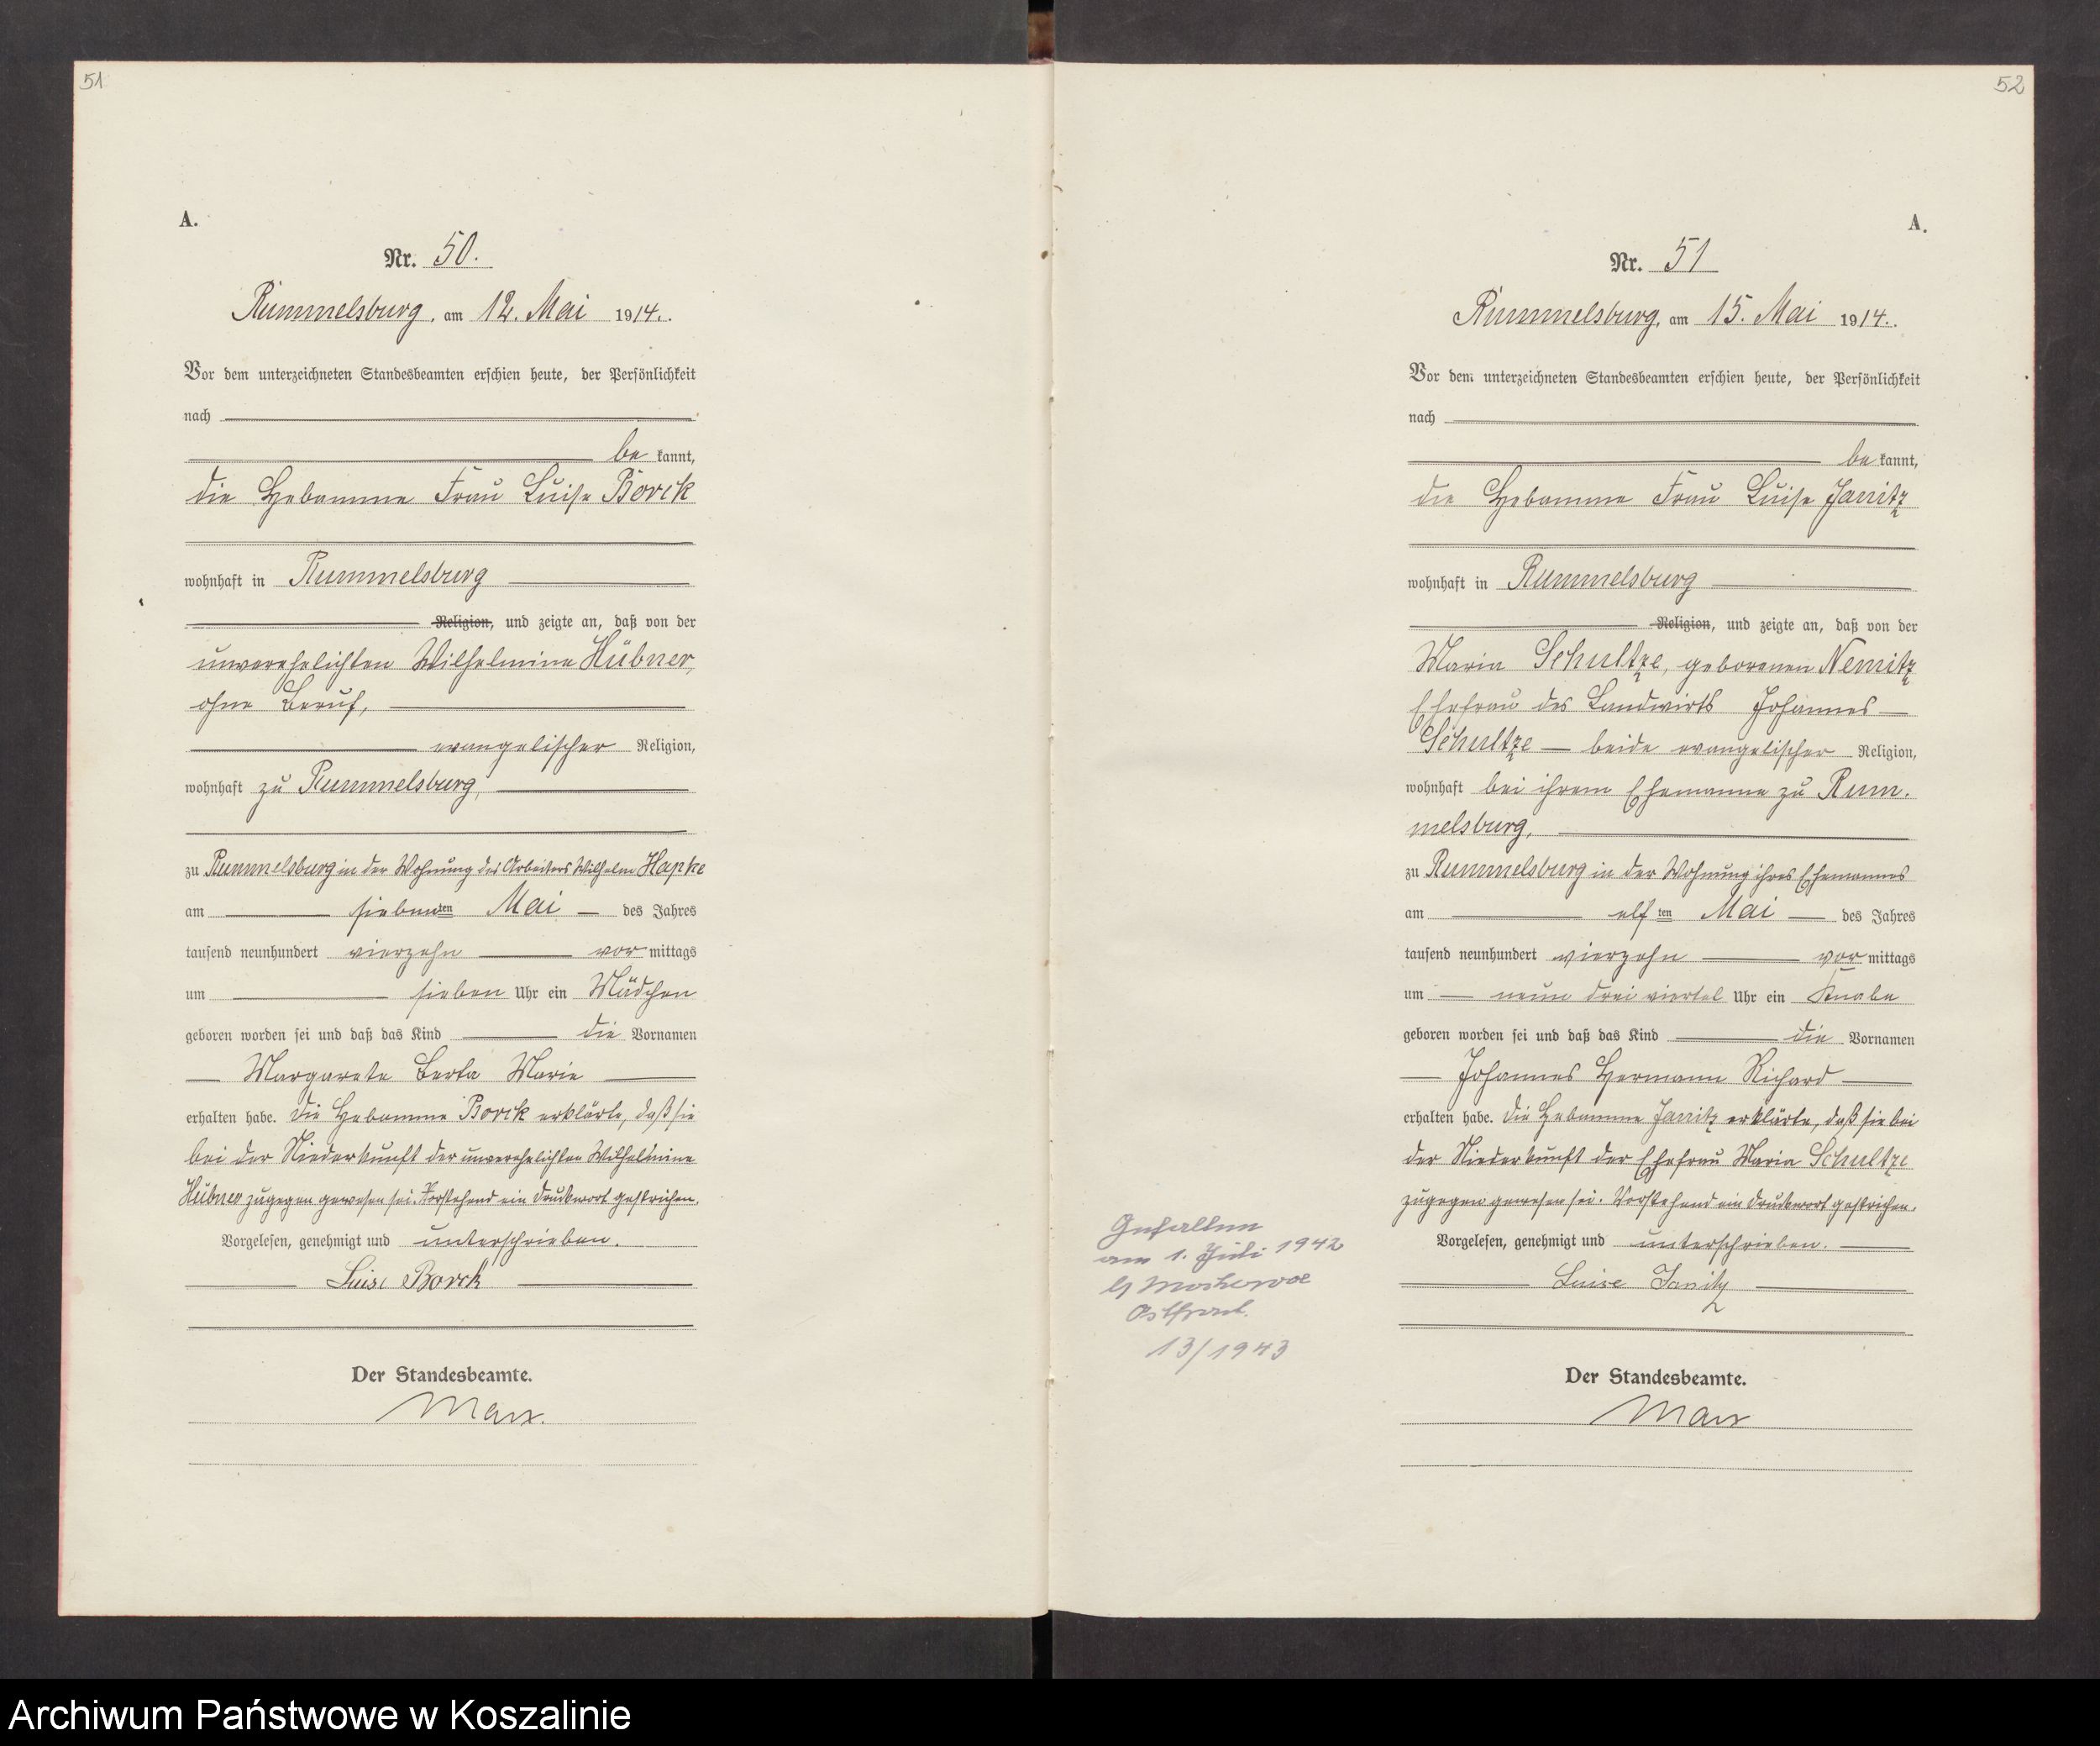 51
A.
Nr. 50.
Rummelsburg, am 12. Mai 1914.
Vor dem unterzeichneten Standesbeamten erschien heute, der Persönlichkeit
nach
be kannt,
die Hebamme Frau Luise Borck
wohnhaft in Rummelsburg
Religion, und zeigte an, daß von der
unverehelichten Wilhelmine Hübner,
ohne Beruf,
evangelischer Religion,
wohnhaft zu Rummelsburg,
zu Rummelsburg in der Wohnung des Arbeiters Wilhelm Hapke
am siebenten Mai des Jahres
tausend neunhundert vierzehn vor mittags
um sieben Uhr ein Mädchen
geboren worden sei und daß das Kind die Vornamen
Margarete Berta Marie
erhalten habe. Die Hebamme Borck erklärte, daß sie
bei der Niederkunft der unverehelichten Wilhelmine
Hübner zugegen gewesen sei. Vorstehend ein Druckwort gestrichen.
Vorgelesen, genehmigt und unterschrieben.
Luise Borck
Der Standesbeamte.
Marx.
52
A.
Nr. 51
Rummelsburg, am 15. Mai 1914.
Vor dem unterzeichneten Standesbeamten erschien heute, der Persönlichkeit
nach
be kannt,
die Hebamme Frau Luise Janitz
wohnhaft in Rummelsburg
Religion, und zeigte an, daß von der
Maria Schultze, geborenen Nemitz
Ehefrau des Landwirts Johannes
Schultze — beide evangelischer Religion,
wohnhaft bei ihrem Ehemanne zu Rum.
melsburg,
zu Rummelsburg in der Wohnung ihres Ehemannes
am elf ten Mai des Jahres
tausend neunhundert vierzehn vor mittags
um neun drei viertel Uhr ein Knabe
geboren worden sei und daß das Kind die Vornamen
Johannes Hermann Richard
erhalten habe. Die Hebamme Janitz erklärte, daß sie bei
der Niederkunft der Ehefrau Maria Schultze
zugegen gewesen sei. Vorstehend ein Druckwort gestrichen.
Vorgelesen, genehmigt und unterschrieben.
Luise Janitz
Der Standesbeamte.
Marx
Gefallen
am 1. Juli 1942
Ostfront.
13/1943
Archiwum Państwowe w Koszalinie